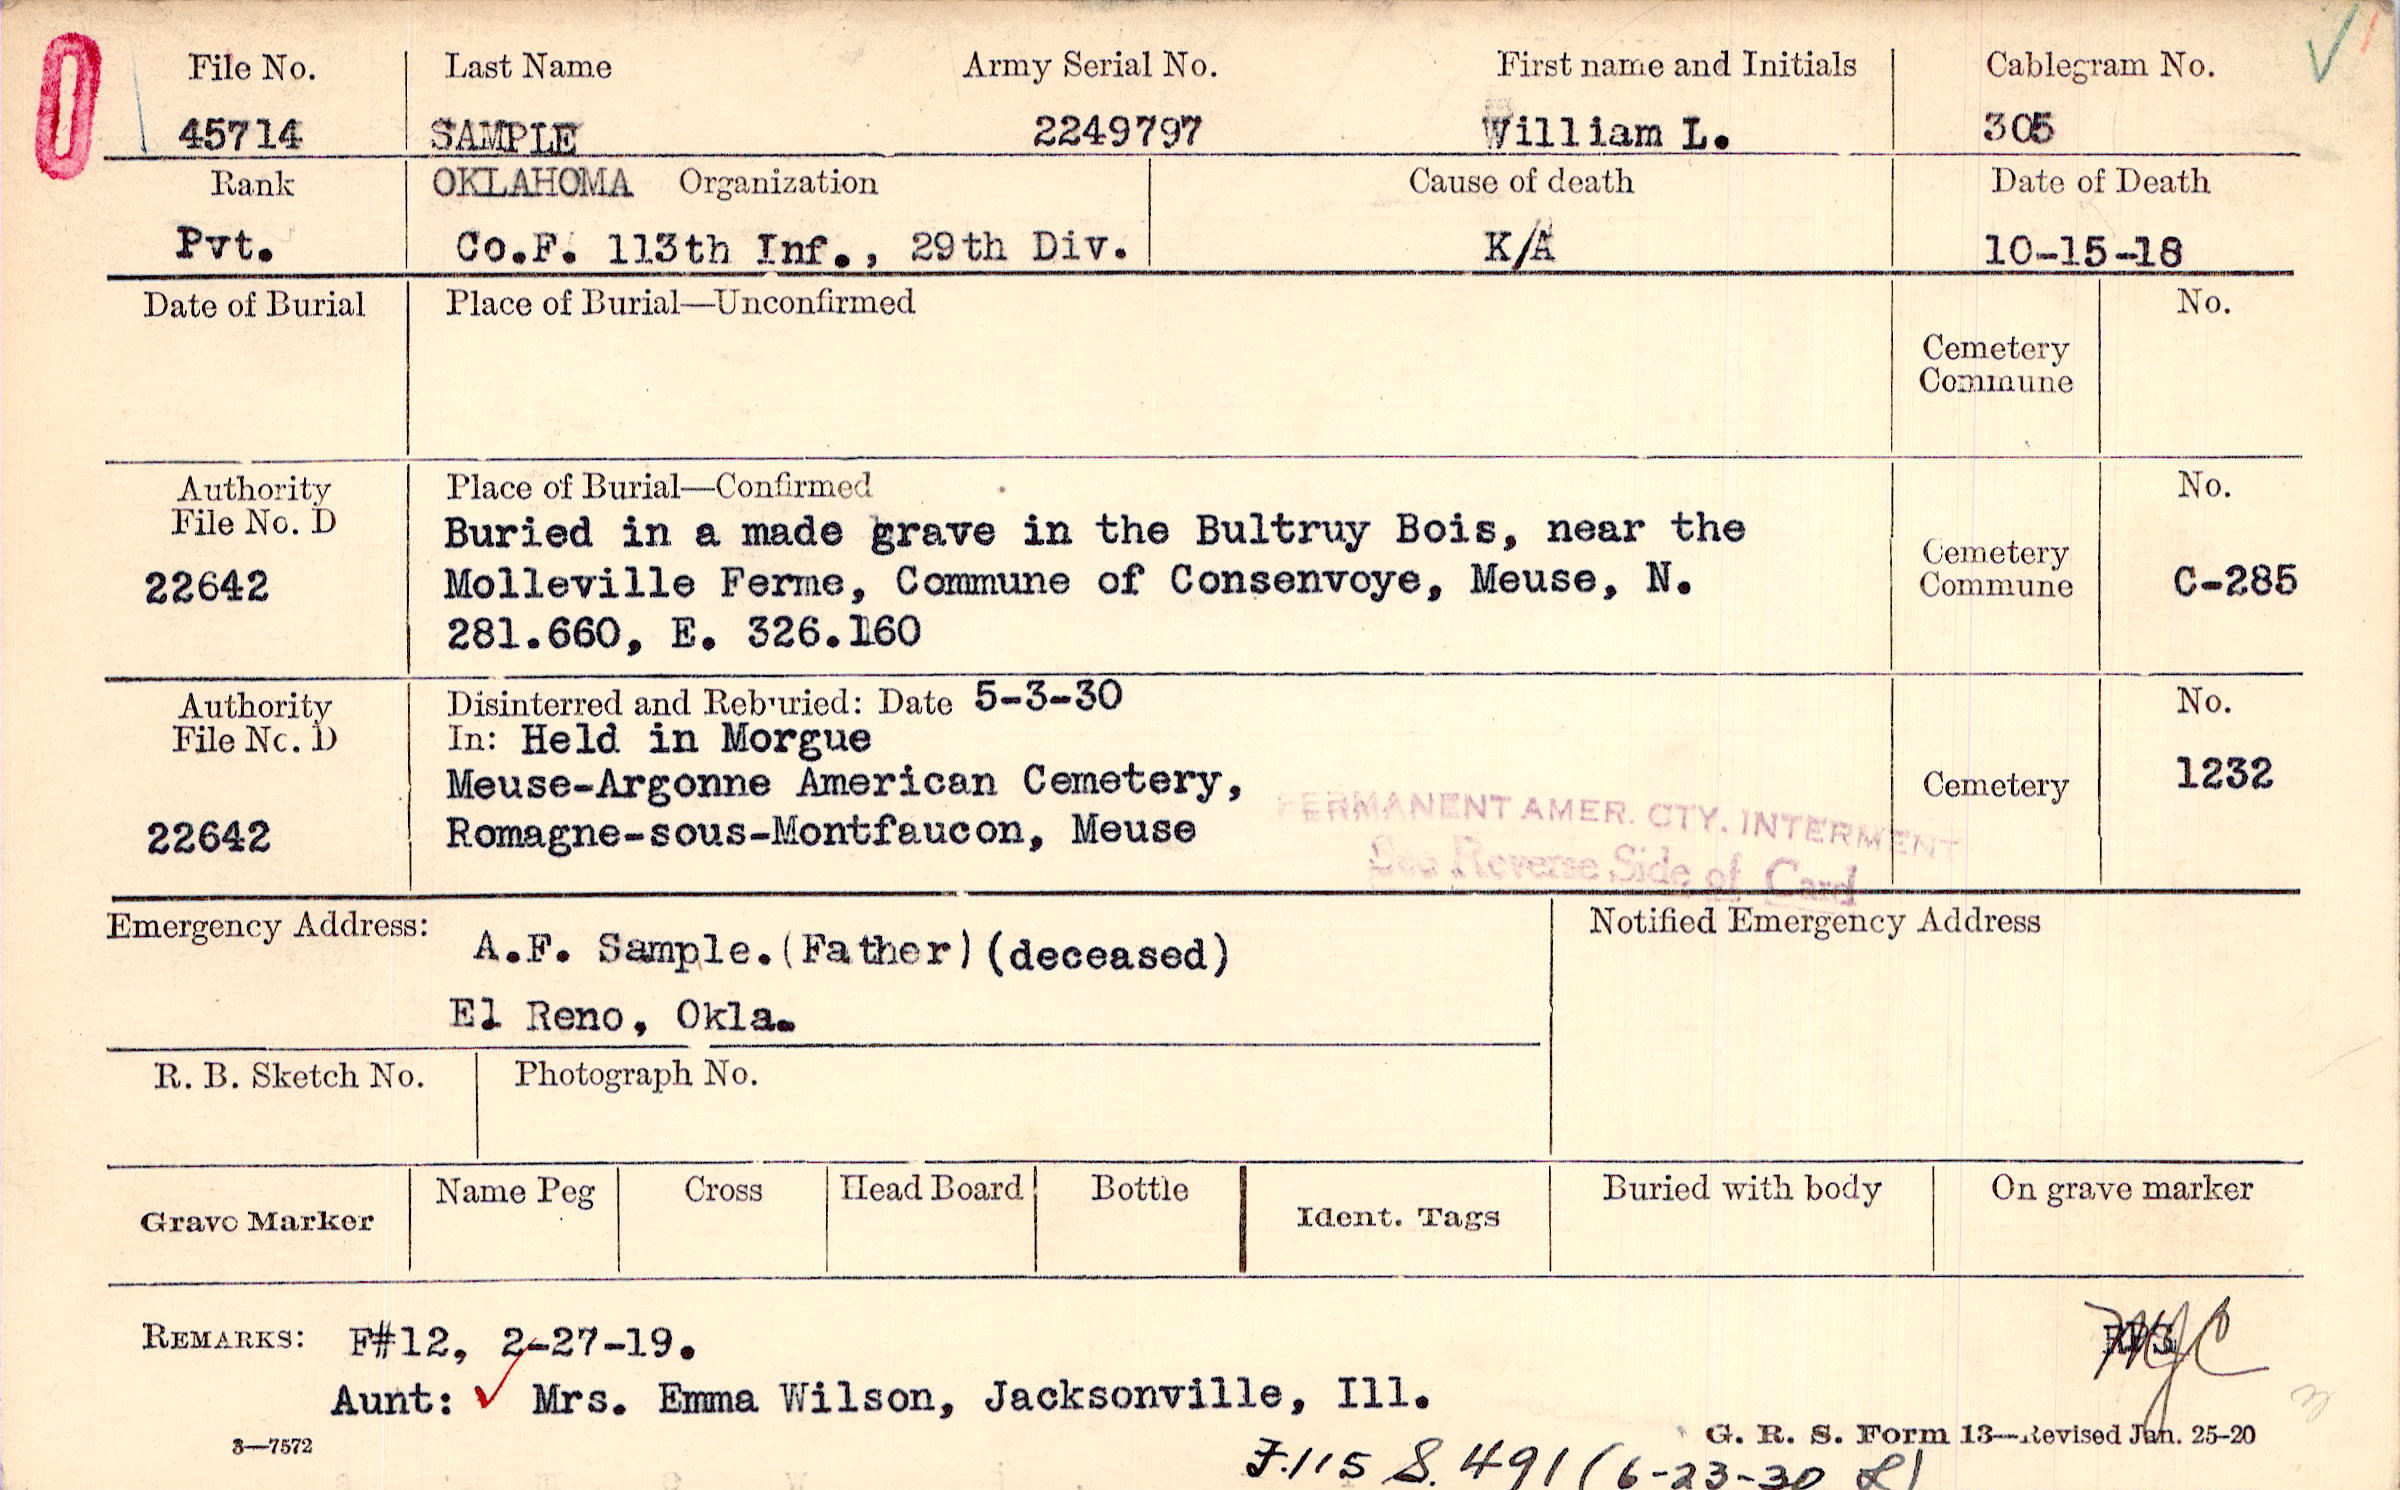 File No. Last Name Army Serial No. First name and Initials Cablegram No.
45714 SAMPLE 2249797 William L. 305
Rank OKLAHOMA Organization Cause of death Date of Death
Pvt. Co.F. 113th Inf., 29th Div. K/A 10-15-18
Date of Burial Place of Burial—Unconfirmed No.
Cemetery
Commune
Authority Place of Burial—Confirmed No.
File No. D Buried in a made grave in the Bultruy Bois, near the
Cemetery
22642 Molleville Ferme, Commune of Consenvoye, Meuse, N. Commune C-285
281.660, E. 326.160
Authority Disinterred and Reburied: Date 5-3-30 No.
File No. D In: Held in Morgue
Meuse-Argonne American Cemetery, Cemetery 1232
PERMANENT AMER. CTY. INTERMENT
22642 Romagne-sous-Montfaucon, Meuse
See Reverse Side of Card
Emergency Address: Notified Emergency Address
A.F. Sample.(Father)(deceased)
El Reno, Okla.
R. B. Sketch No. Photograph No.
Grave Marker Name Peg Cross Head Board Bottle Ident. Tags Buried with body On grave marker
REMARKS: F#12, 2-27-19.
Aunt: ✓ Mrs. Emma Wilson, Jacksonville, Ill.
3—7572 G. R. S. Form 13—Revised Jan. 25-20
F.115 S. 491 (6-23-30